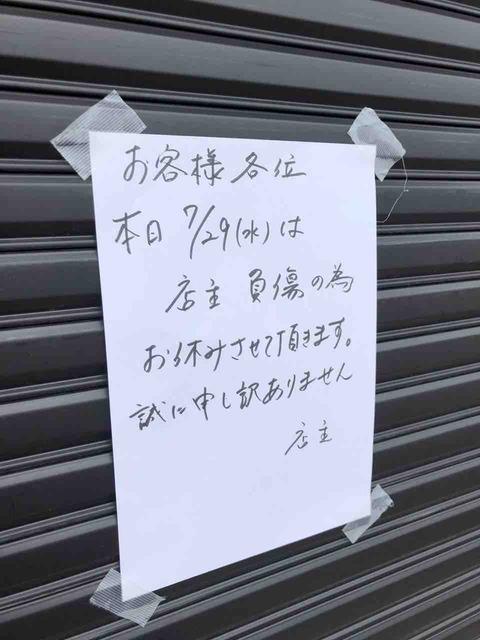 お客様各位
本日 7/29(水)は
店主 負傷の為
お休みさせて頂きます。
誠に申し訳ありません
店主